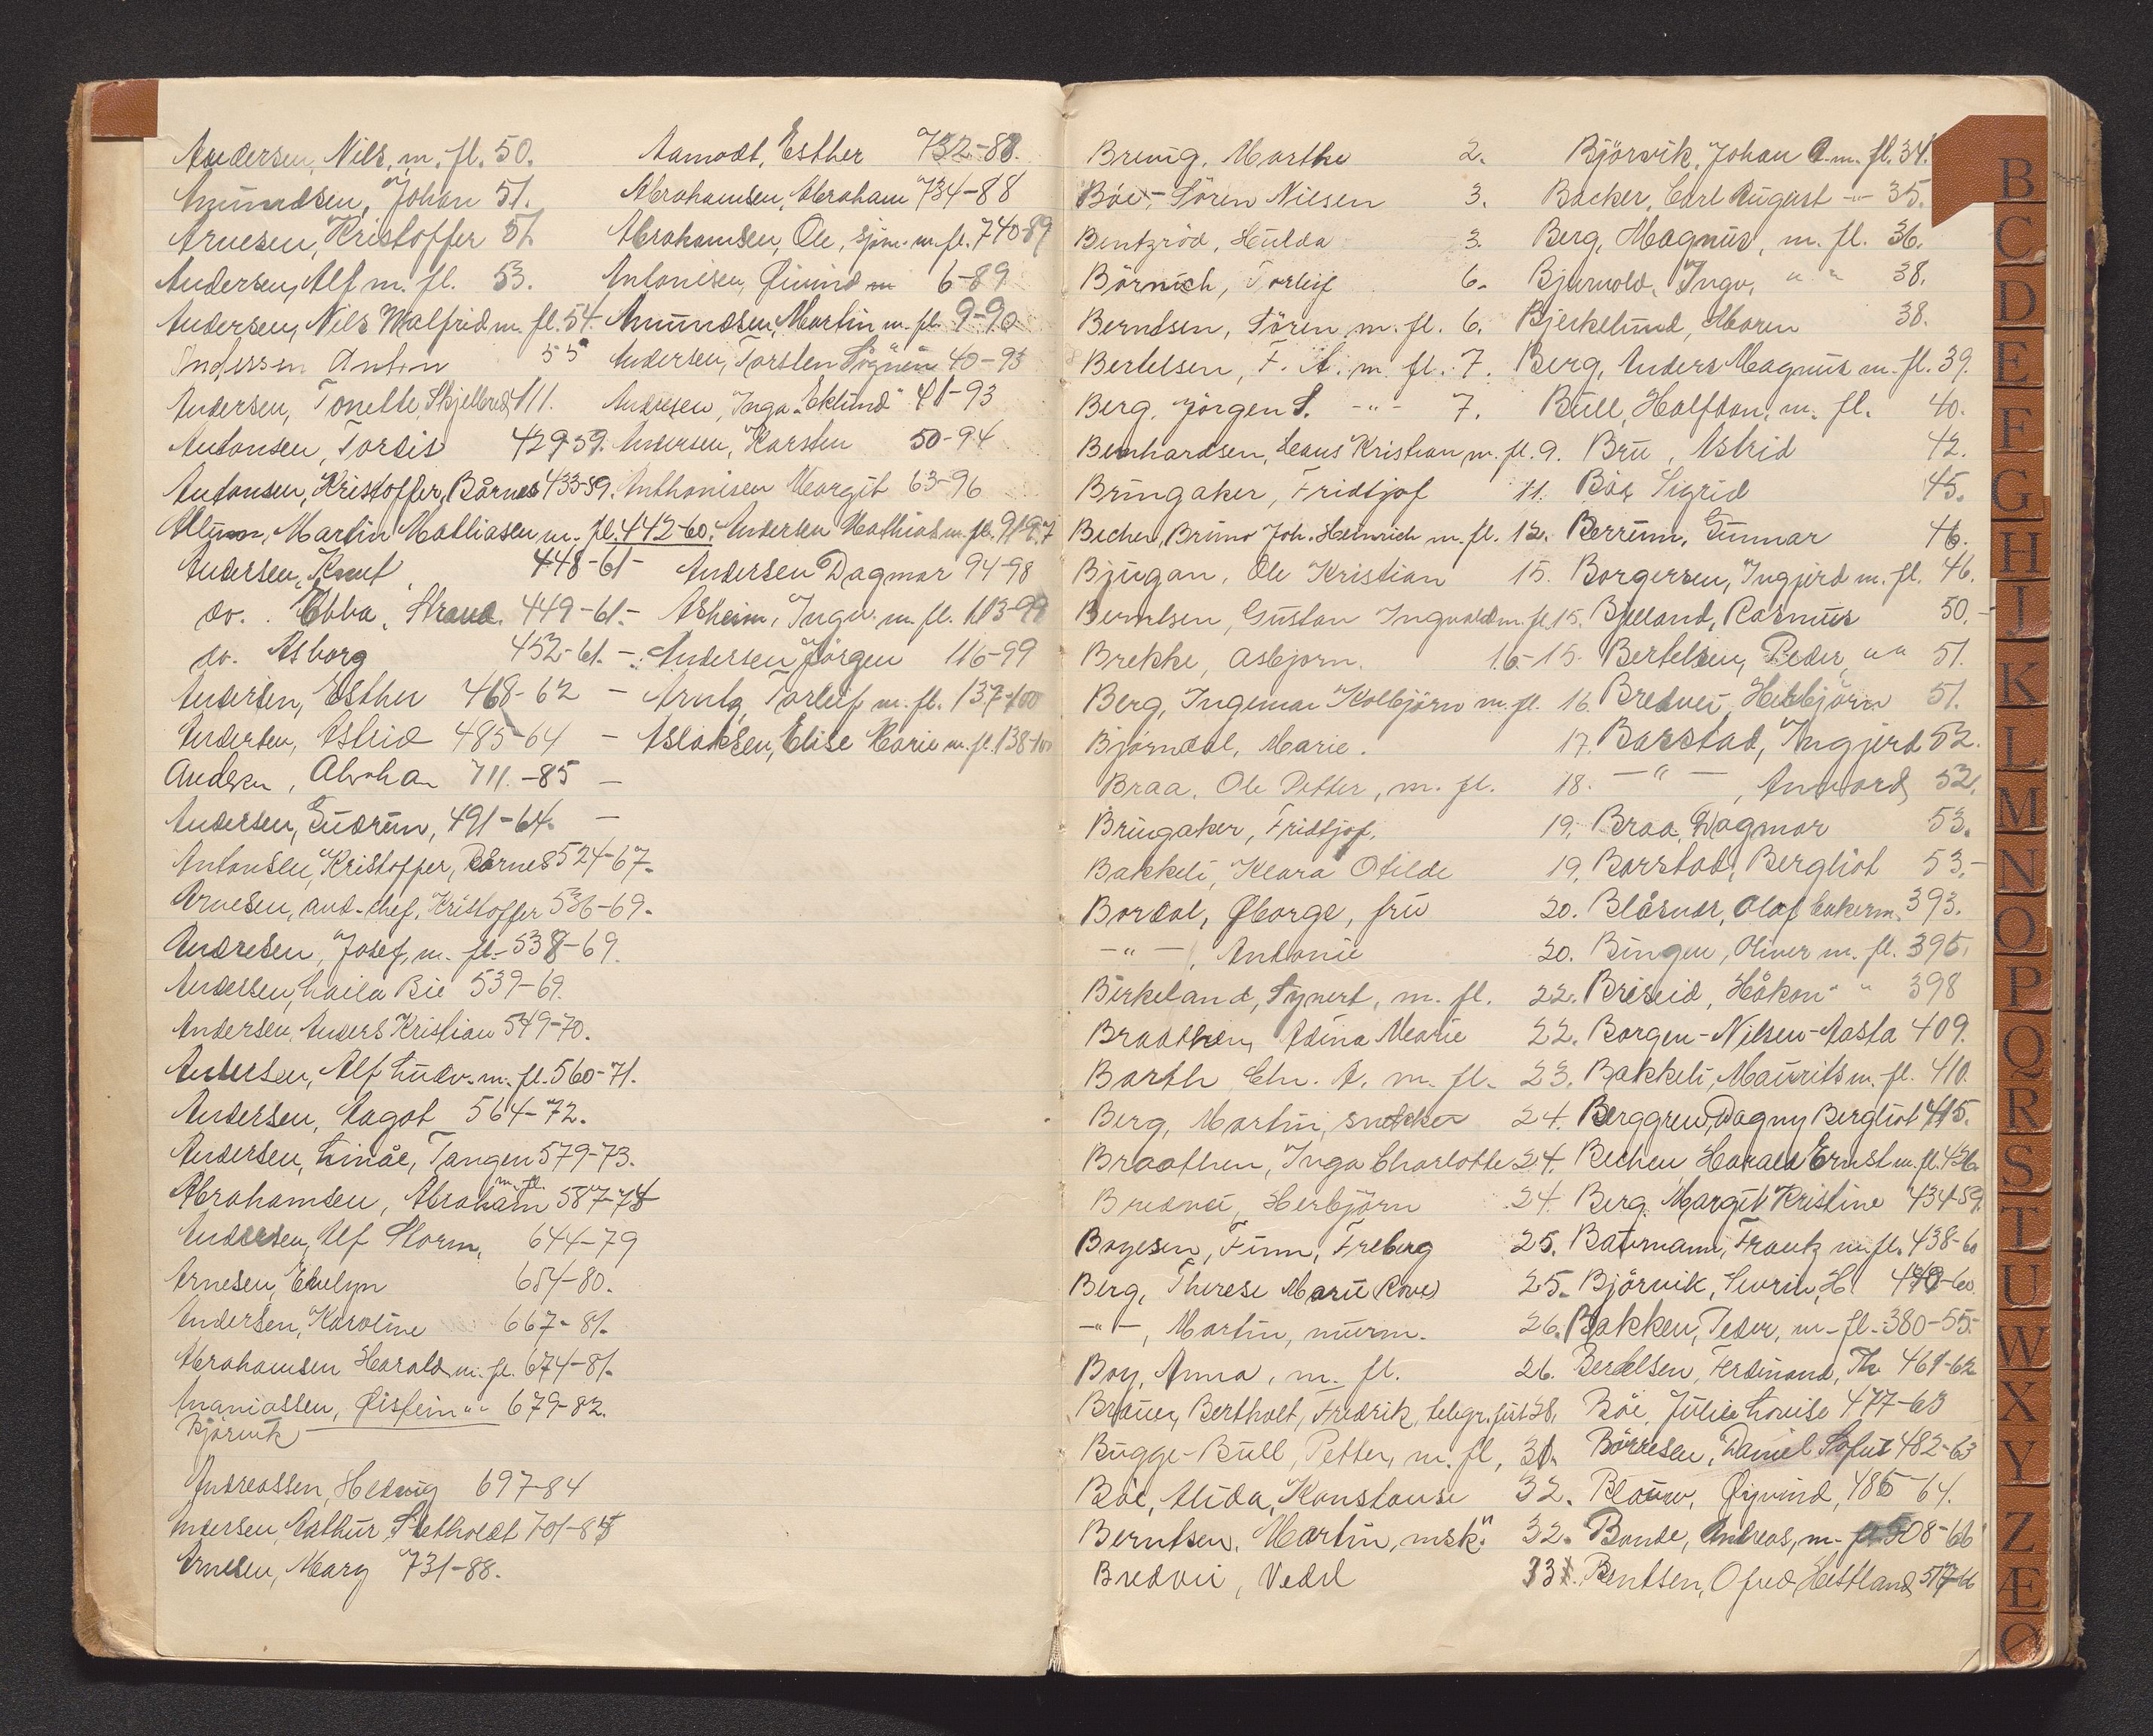 Andersen, Nils, m. fl. 50.
Amundsen, Johan 51.
Arnesen, Kristoffer 51.
Andersen, Alf m. fl. 53.
Andersen, Nils Walfrid m. fl. 54.
Andersen Anton 55
Andersen, Tonette, Skjelbred, 111.
Antonsen, Tordis 429-59.
Antonsen, Kristoffer, Bårnes 433-59.
Allum, Martin Mathiasen m. fl. 442-60.
Andersen, Knut 448-61-
do. Ebba, Strand. 449-61.-
do. Asborg 452-61.-
Andersen, Esther 468-62 -
Andersen, Astrid 485-64 -
Andersen, Abraham 711.-85 -
Andersen, Gudrun, 491-64. -
Antonsen, Kristoffer, Bårnes 524-67.
Arnesen, and.-chef, Kristoffer 536-69.
Andresen, Josef, m. fl. 538-69.
Andersen, Laila Bie 539-69.
Andersen, Anders Kristian 549-70.
Andersen, Alf Ludv. m. fl. 560-71.
Andersen, Aagot 564-72.
Andersen, Linåe, Tangen 579-73.
Abrahamsen, Abraham m. fl. 587-74
Andersen, Alf Storm, 644-79
Arnesen, Evelyn 654-80.
Andersen, Karoline 667-81.
Abrahamsen Harald m. fl. 674-81.
Ananiassen, Øistein " 679-82.
Bjørvik
Andreassen, Hedvig 697-84
Andersen, Arthur, 701-85
Arnesen, Mary 731-88.
Aamodt, Esther 732-88.
Abrahamsen, Abraham 734-88
Abrahamsen, Ole, sjøm. m. fl. 740-89
Antonisen, Øivind m 6-89
Amundsen, Martin m. fl. 9-90
Andersen, Torsten Søgnen 40-93
Andresen, Inga "Eklund" 41-93
Andersen, Karsten 50-94
Anthonisen Margit 63-96
Andersen Mathias m. fl. 91-97
Andersen Dagmar 94-98
Asheim, Ingv. m. fl. 113-99
Andersen Jörgen 116-99
Arntz, Torleif m. fl. 137-100
Aslaksen, Elise Marie m. fl. 138-100
Breivig, Marthe 2.
Böe, Sören Nilsen 3.
Bentzröd, Hulda 3.
Börnich, Torleif 6.
Berndsen, Sören m. fl. 6.
Bertelsen, F. A. m. fl. 7.
Berg, Jörgen S. -"- 7.
Bernhardsen, Hans Kristian m. fl. 9.
Bringaker, Fridtjof 11.
Becher, Bruno Joh. Heinrich m. fl. 12.
Bjugan, Ole Kristian 15.
Berntsen, Gustav Ingvald m. fl. 15.
Brekke, Asbjørn. 16-15.
Berg, Ingemar Kolbjörn m. fl. 16.
Bjørndal, Marie. 17.
Braa, Ole Petter, m. fl. 18.
Bringaker, Fridtjof. 19.
Bakkeli, Klara Otilde 19.
Bordal, Øborge, fru 20.
-"-, Antonie 20.
Birkeland, Synert, m. fl. 22.
Braathen, Adina Marie 22.
Barth Chr. A. m. fl. 23.
Berg, Martin, snekker 24.
Braathen, Inga Charlotte 24.
Bredvei, Herbjörn 24.
Boyesen, Finn, Freberg 25.
Berg, Therese Marie (Rove) 25.
-"-, Martin, murm. 26.
Boy, Anna, m. fl. 26.
Brauer, Bertholt, Fredrik, telegr. 28.
Bugge-Bull, Petter, m. fl, 31.
Böe, Alida, Konstanse 32.
Berntsen, Martin, msk. 32.
Bredvei, Vedel 33.
Björvik, Johan A. m. fl. 34.
Backer, Carl August -"- 35.
Berg, Magnus, m. fl. 36.
Bjurvold, Ingv. " " 38.
Bjerkelund, Maren 38.
Berg, Anders Magnus m. fl. 39.
Bull, Halfdan, m. fl. 40.
Bru, Astrid 42.
Böe, Sigrid 45.
Berrum, Gunnar 46.
Borgersen, Ingjerd m. fl. 46.
Bjelland, Rasmus 50.-
Bertelsen, Peder " " 51.
Bredvei, Herbjörn 51.
Barstad, Ingjerd 52.
-"-, Annvord, 52.
Braa, Dagmar 53.
Barstad, Bergliot 53.-
Blåsvær, Olaf 393.
Bingen, Oliver m. fl. 395.
Briseid, Håkon " " 398
Borgen-Nilsen-Aasta 409.
Bakkeli, Maurits m. fl. 410.
Berggren, Dagny Bergliot 415.
Becher Harald Ernst m. fl. 426.
Berg. Margit Kristine 434-59.
Batrmann, Frantz m. fl. 438-60
Björvik, Severin, H. 449-60.
Bakken, Peder, m. fl. 380-55.
Bertelsen, Ferdinand, Th. 461-62
Böe, Julie Lovise 477-63
Börresen, Daniel 482-63
Blauw, Øyvind, 485-64.
Bonde, Andreas, m. fl. 508-66
Bentsen, Hestland, 517-66
B
C
D
E
F
G
H
I
K
L
M
N
O
P
Q
R
S
T
U
W
X
Y
Z
Æ
Ø